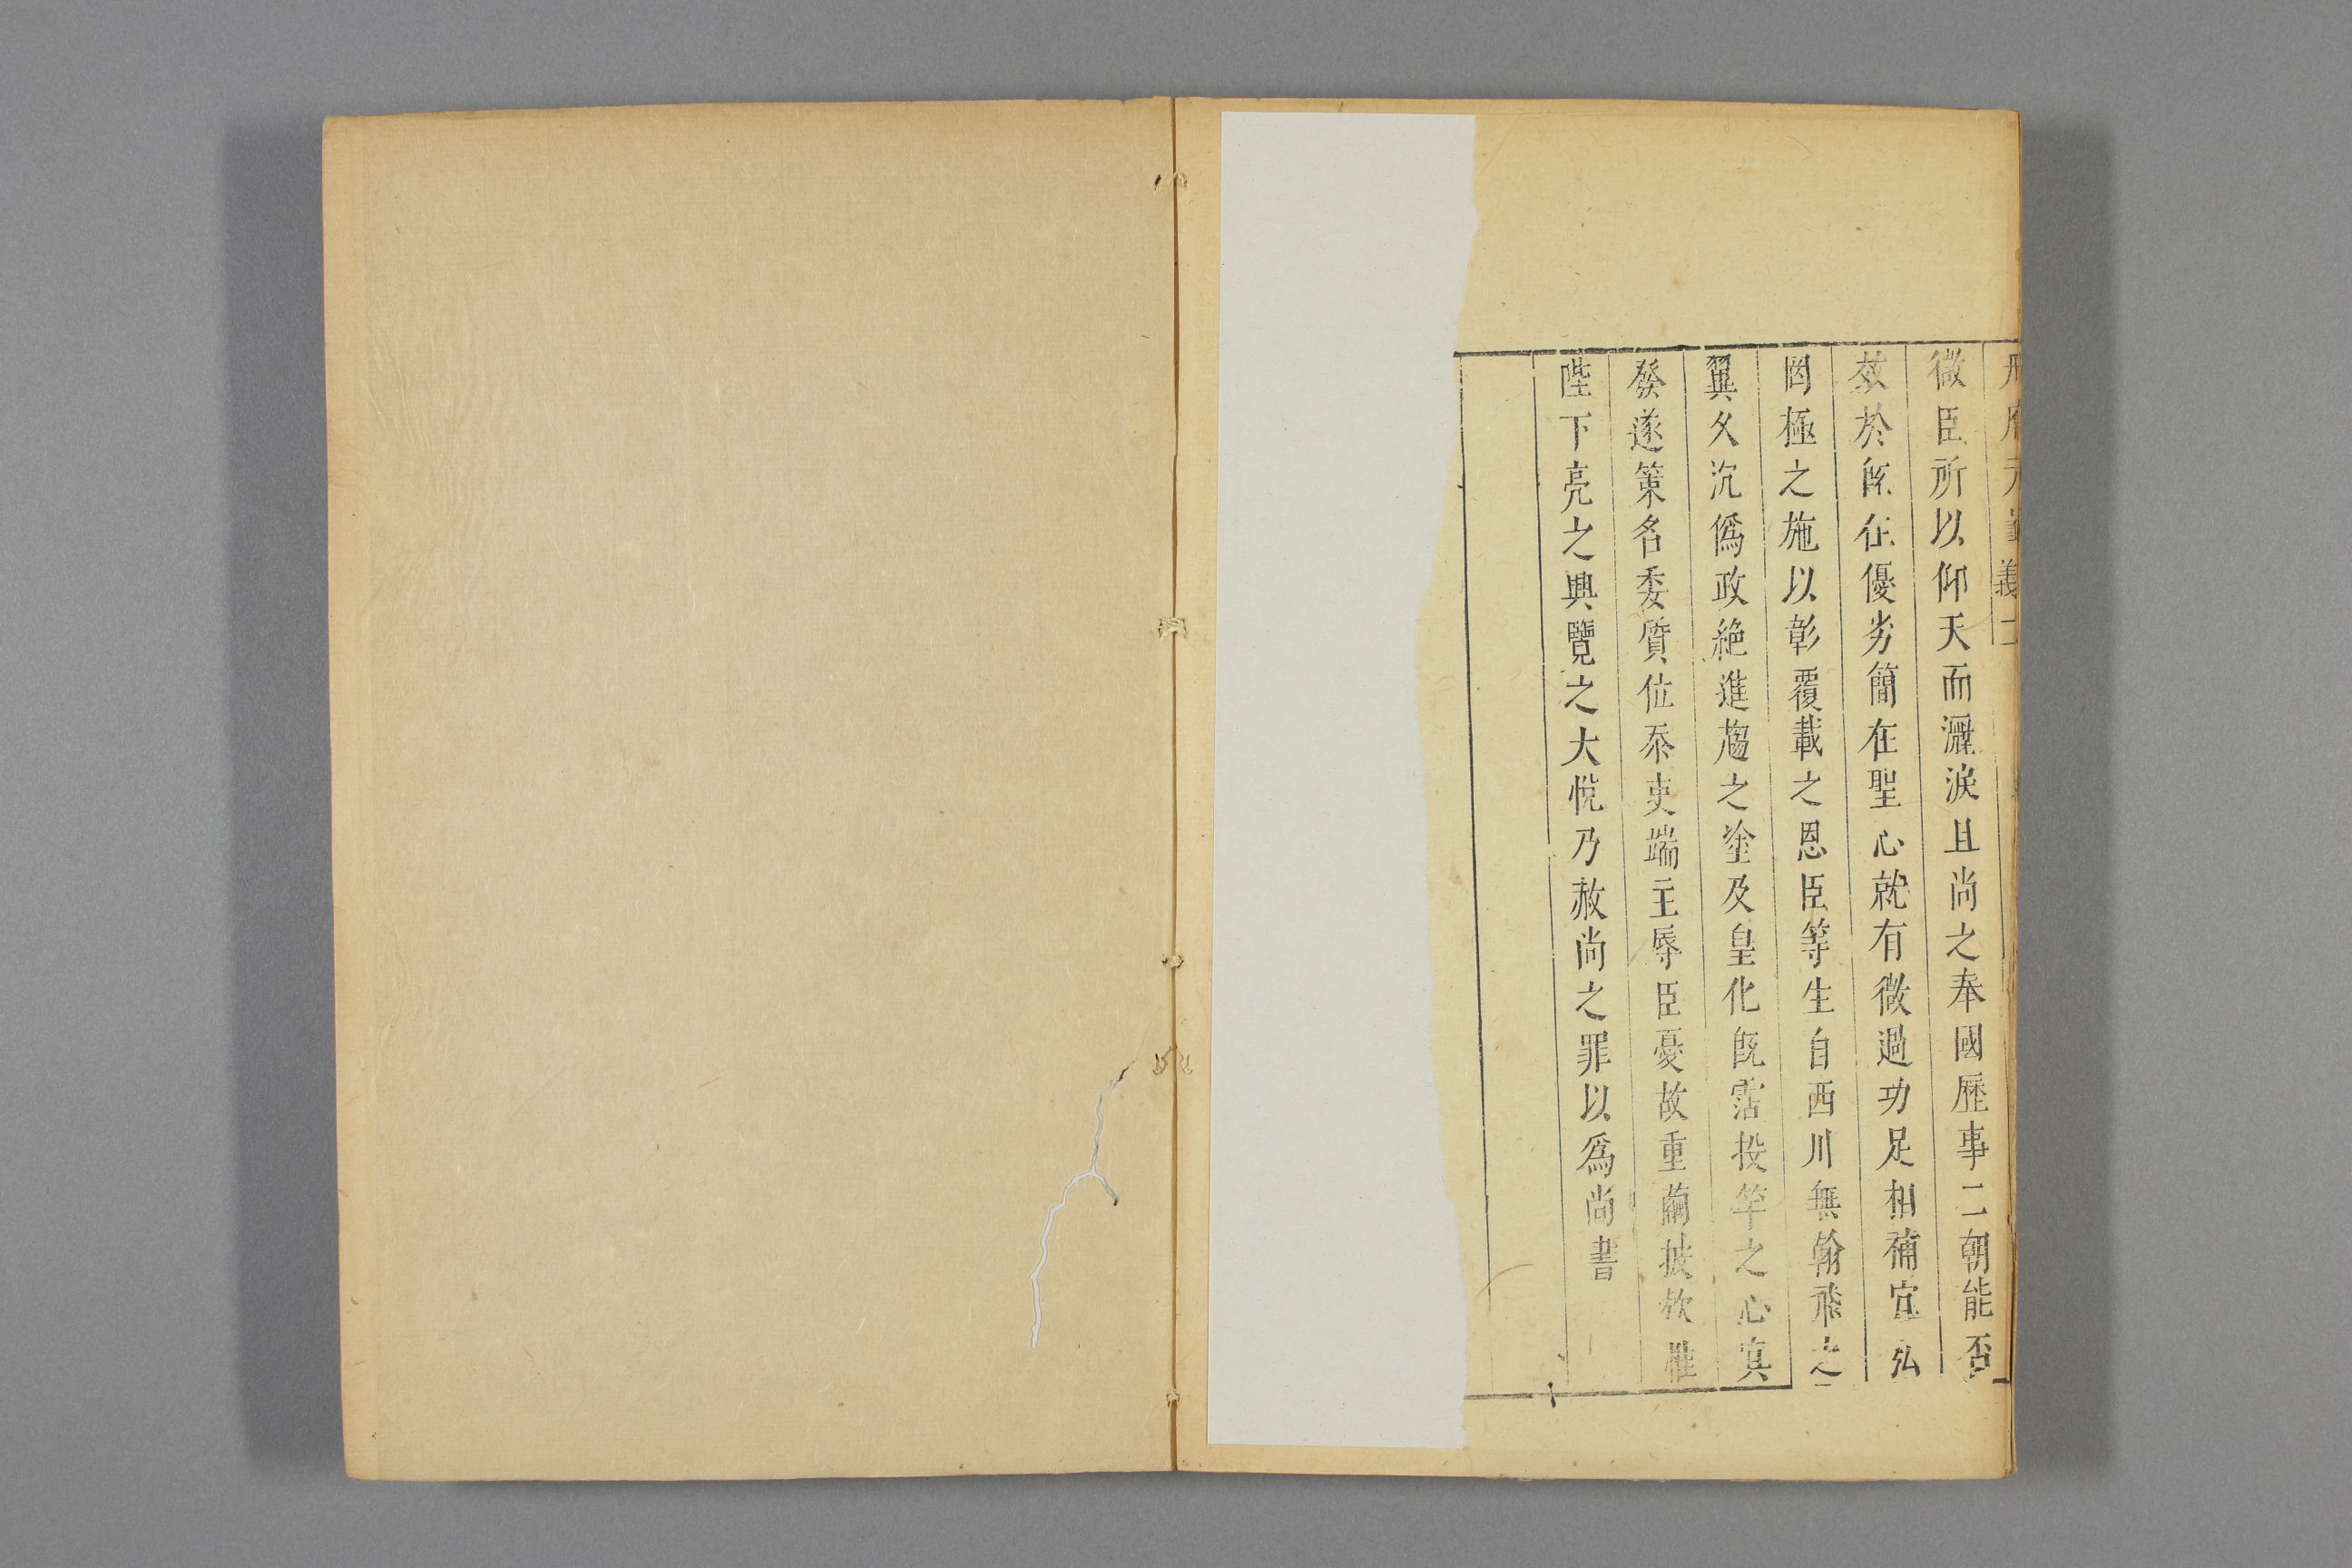 册府元龜義二
微臣所以仰天而灑淚且尚之奉國歷事二朝能否
茲於既在優劣簡在聖心就有微過功足相補宜弘
罔極之施以彰覆載之恩臣等生自西川無翰飛之
翼久沉僞政絶進趨之塗及皇化既霑投竿之心寘
發遂策名委質位忝吏端主辱臣憂故重繭披欵惟
陛下亮之興覽之大悅乃赦尚之罪以爲尚書